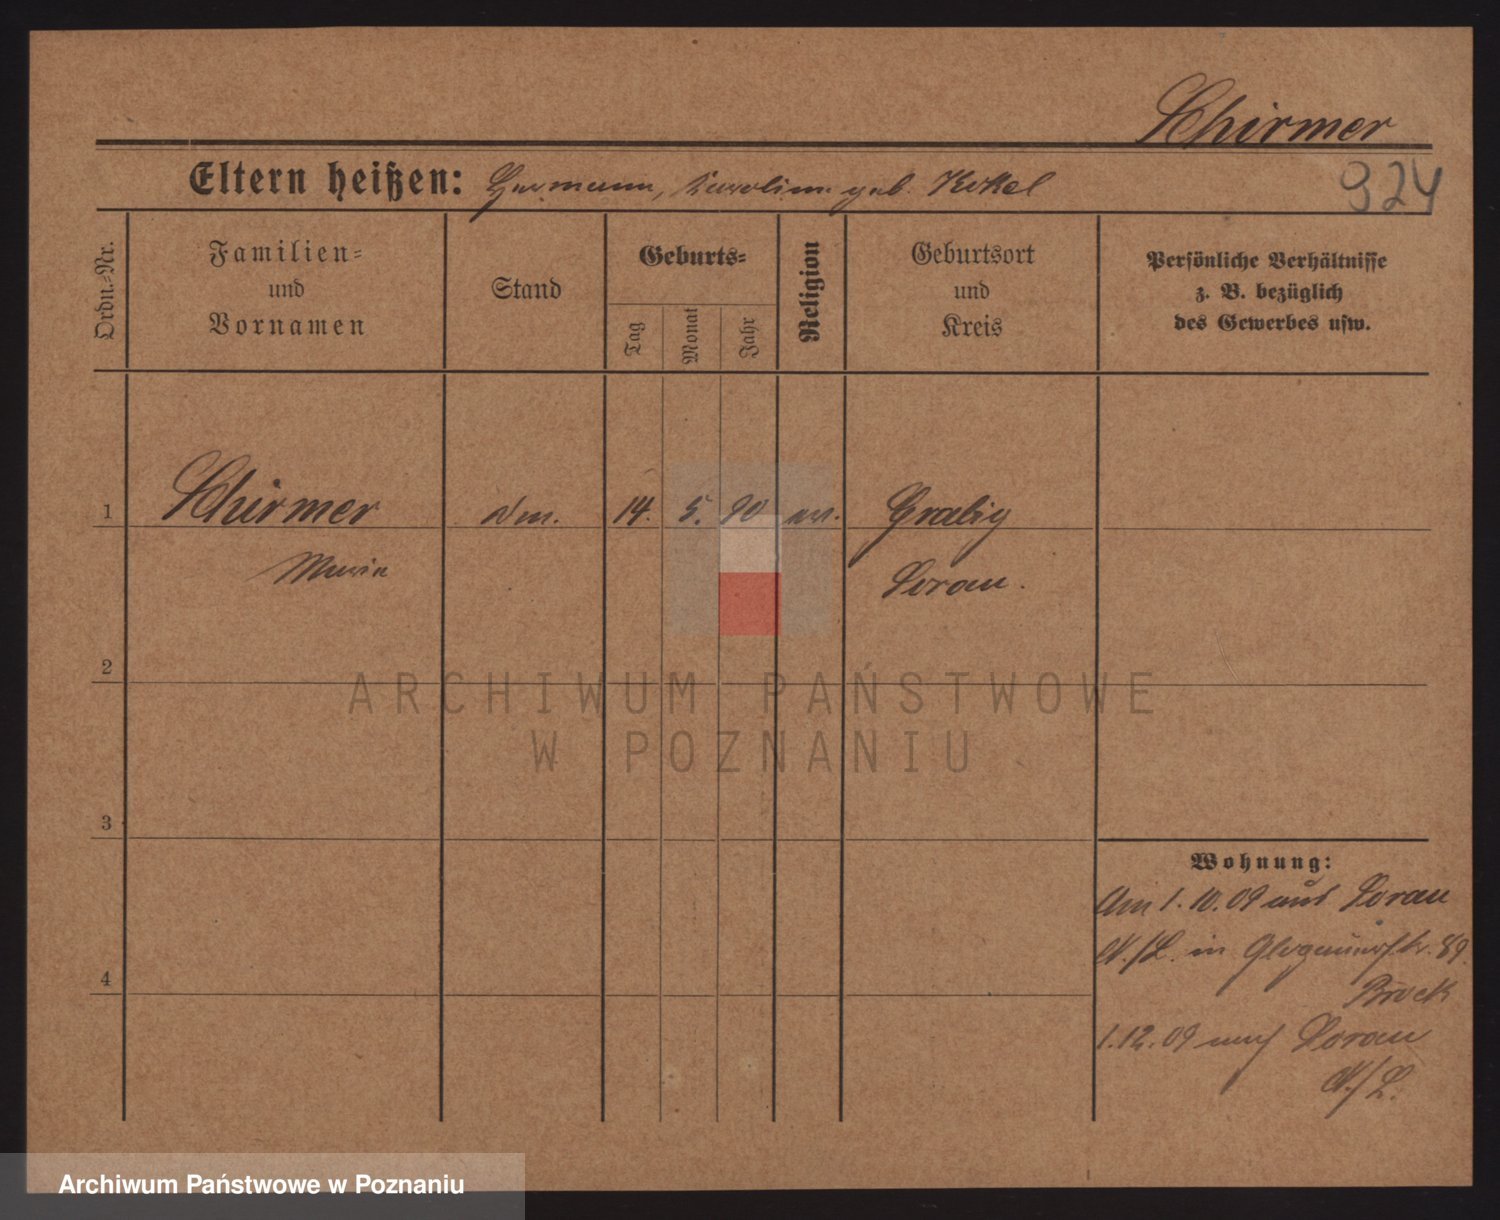 Schirmer
Eltern heißen: Hermann, Karoline geb. Kokel
924
Ordn.-Nr.
Familien-
und
Vornamen
Stand
Geburts-
Tag
Monat
Jahr
Religion
Geburtsort
und
Kreis
Persönliche Verhältnisse
z. B. bezüglich
des Gewerbes usw.
1
Schirmer
14. 5. 90 ev.
Grabig
Maria
Sorau.
2
ARCHIWUM PAŃSTWOWE
W POZNANIU
3
Wohnung:
Am 1. 10. 09 aus Sorau
N./L. in Glogauerstr. 89.
Brock
4
1. 12. 09 nach Sorau
N./L.
Archiwum Państwowe w Poznaniu